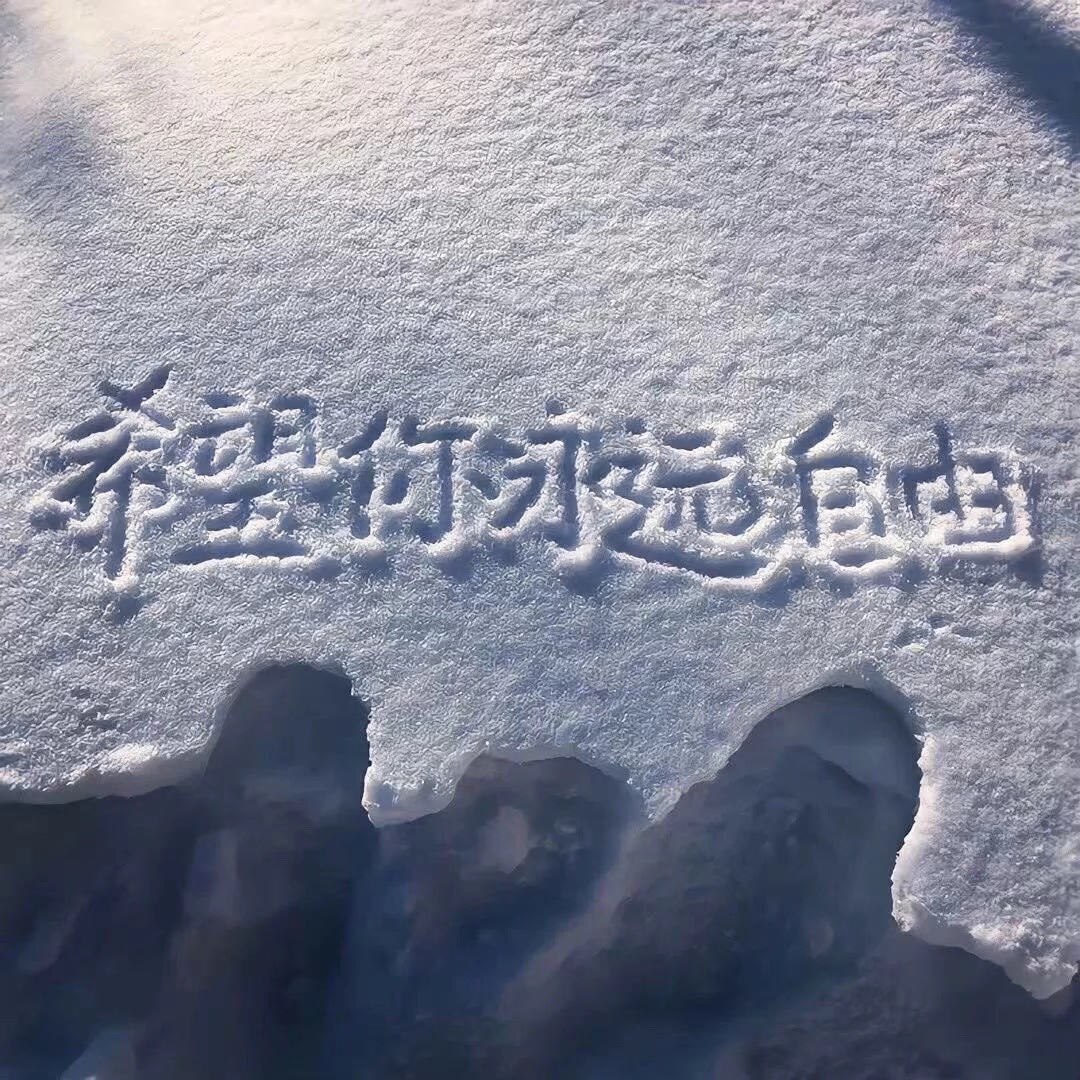 希望你永远自由